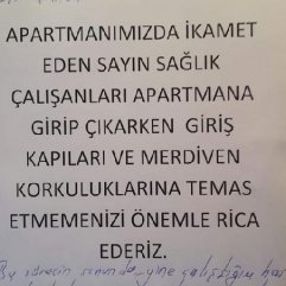 APARTMANIMIZDA İKAMET
EDEN SAYIN SAĞLIK
ÇALIŞANLARI APARTMANA
GİRİP ÇIKARKEN GİRİŞ
KAPILARI VE MERDİVEN
KORKULUKLARINA TEMAS
ETMEMENİZİ ÖNEMLE RİCA
EDERİZ.
Bu sürecin sonunda yine çalıştığım